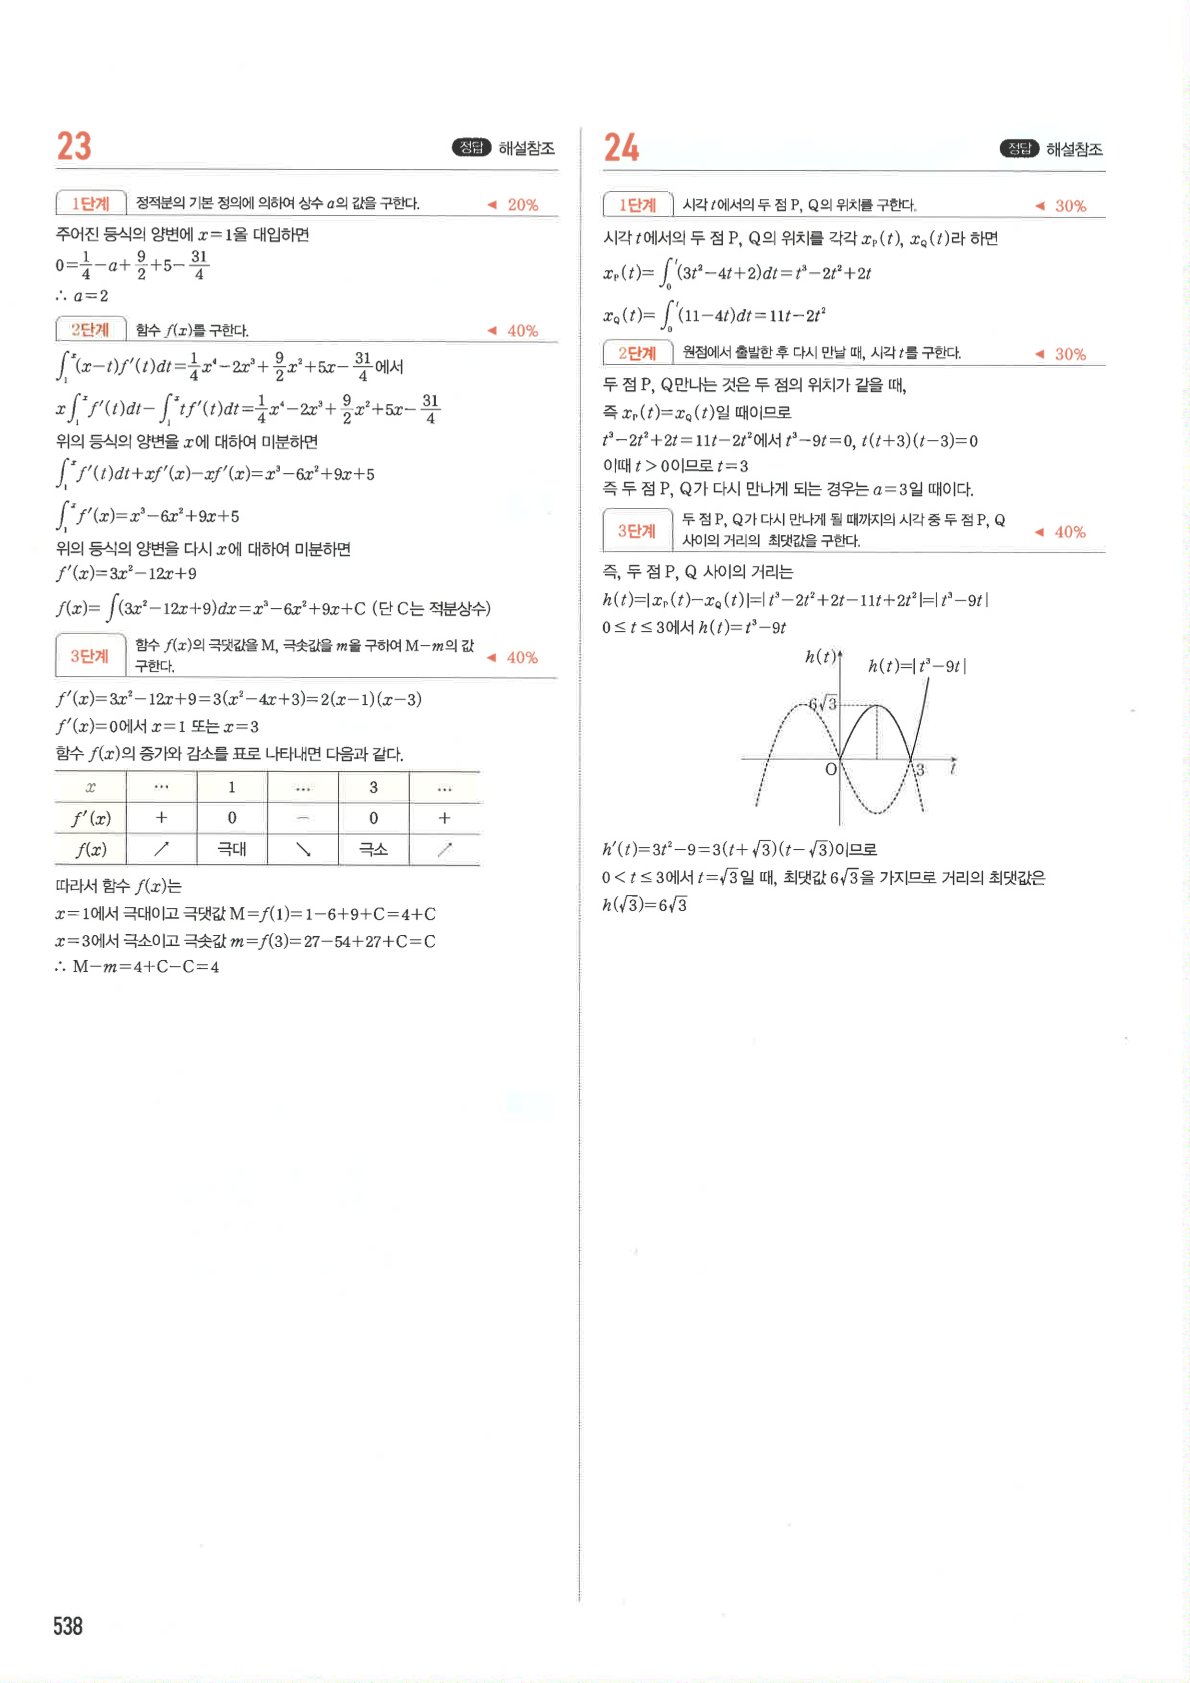 23
정답 해설참조
1단계 정적분의 기본 정의에 의하여 상수 a의 값을 구한다. ◀ 20%
주어진 등식의 양변에 x=1을 대입하면
0=1/4−a+9/2+5−31/4
∴ a=2
2단계 함수 f(x)를 구한다. ◀ 40%
∫₁ˣ(x−t)f′(t)dt=1/4x⁴−2x³+9/2x²+5x−31/4에서
x∫₁ˣf′(t)dt−∫₁ˣtf′(t)dt=1/4x⁴−2x³+9/2x²+5x−31/4
위의 등식의 양변을 x에 대하여 미분하면
∫₁ˣf′(t)dt+xf′(x)−xf′(x)=x³−6x²+9x+5
∫₁ˣf′(x)=x³−6x²+9x+5
위의 등식의 양변을 다시 x에 대하여 미분하면
f′(x)=3x²−12x+9
f(x)=∫(3x²−12x+9)dx=x³−6x²+9x+C (단 C는 적분상수)
3단계 함수 f(x)의 극댓값을 M, 극솟값을 m을 구하여 M−m의 값
구한다. ◀ 40%
f′(x)=3x²−12x+9=3(x²−4x+3)=2(x−1)(x−3)
f′(x)=0에서 x=1 또는 x=3
함수 f(x)의 증가와 감소를 표로 나타내면 다음과 같다.
x ⋯ 1 ⋯ 3 ⋯
f′(x) + 0 − 0 +
f(x) ↗ 극대 ↘ 극소 ↗
따라서 함수 f(x)는
x=1에서 극대이고 극댓값 M=f(1)=1−6+9+C=4+C
x=3에서 극소이고 극솟값 m=f(3)=27−54+27+C=C
∴ M−m=4+C−C=4
24
정답 해설참조
1단계 시각 t에서의 두 점 P, Q의 위치를 구한다. ◀ 30%
시각 t에서의 두 점 P, Q의 위치를 각각 x_P(t), x_Q(t)라 하면
x_P(t)=∫₀ᵗ(3t²−4t+2)dt=t³−2t²+2t
x_Q(t)=∫₀ᵗ(11−4t)dt=11t−2t²
2단계 원점에서 출발한 후 다시 만날 때, 시각 t를 구한다. ◀ 30%
두 점 P, Q만나는 것은 두 점의 위치가 같을 때,
즉 x_P(t)=x_Q(t)일 때이므로
t³−2t²+2t=11t−2t²에서 t³−9t=0, t(t+3)(t−3)=0
이때 t>0이므로 t=3
즉 두 점 P, Q가 다시 만나게 되는 경우는 a=3일 때이다.
3단계 두 점 P, Q가 다시 만나게 될 때까지의 시각 중 두 점 P, Q
사이의 거리의 최댓값을 구한다. ◀ 40%
즉, 두 점 P, Q 사이의 거리는
h(t)=|x_P(t)−x_Q(t)|=|t³−2t²+2t−11t+2t²|=|t³−9t|
0≤t≤3에서 h(t)=t³−9t
h(t)
h(t)=|t³−9t|
6√3
O 3 t
h′(t)=3t²−9=3(t+√3)(t−√3)이므로
0<t≤3에서 t=√3일 때, 최댓값 6√3을 가지므로 거리의 최댓값은
h(√3)=6√3
538